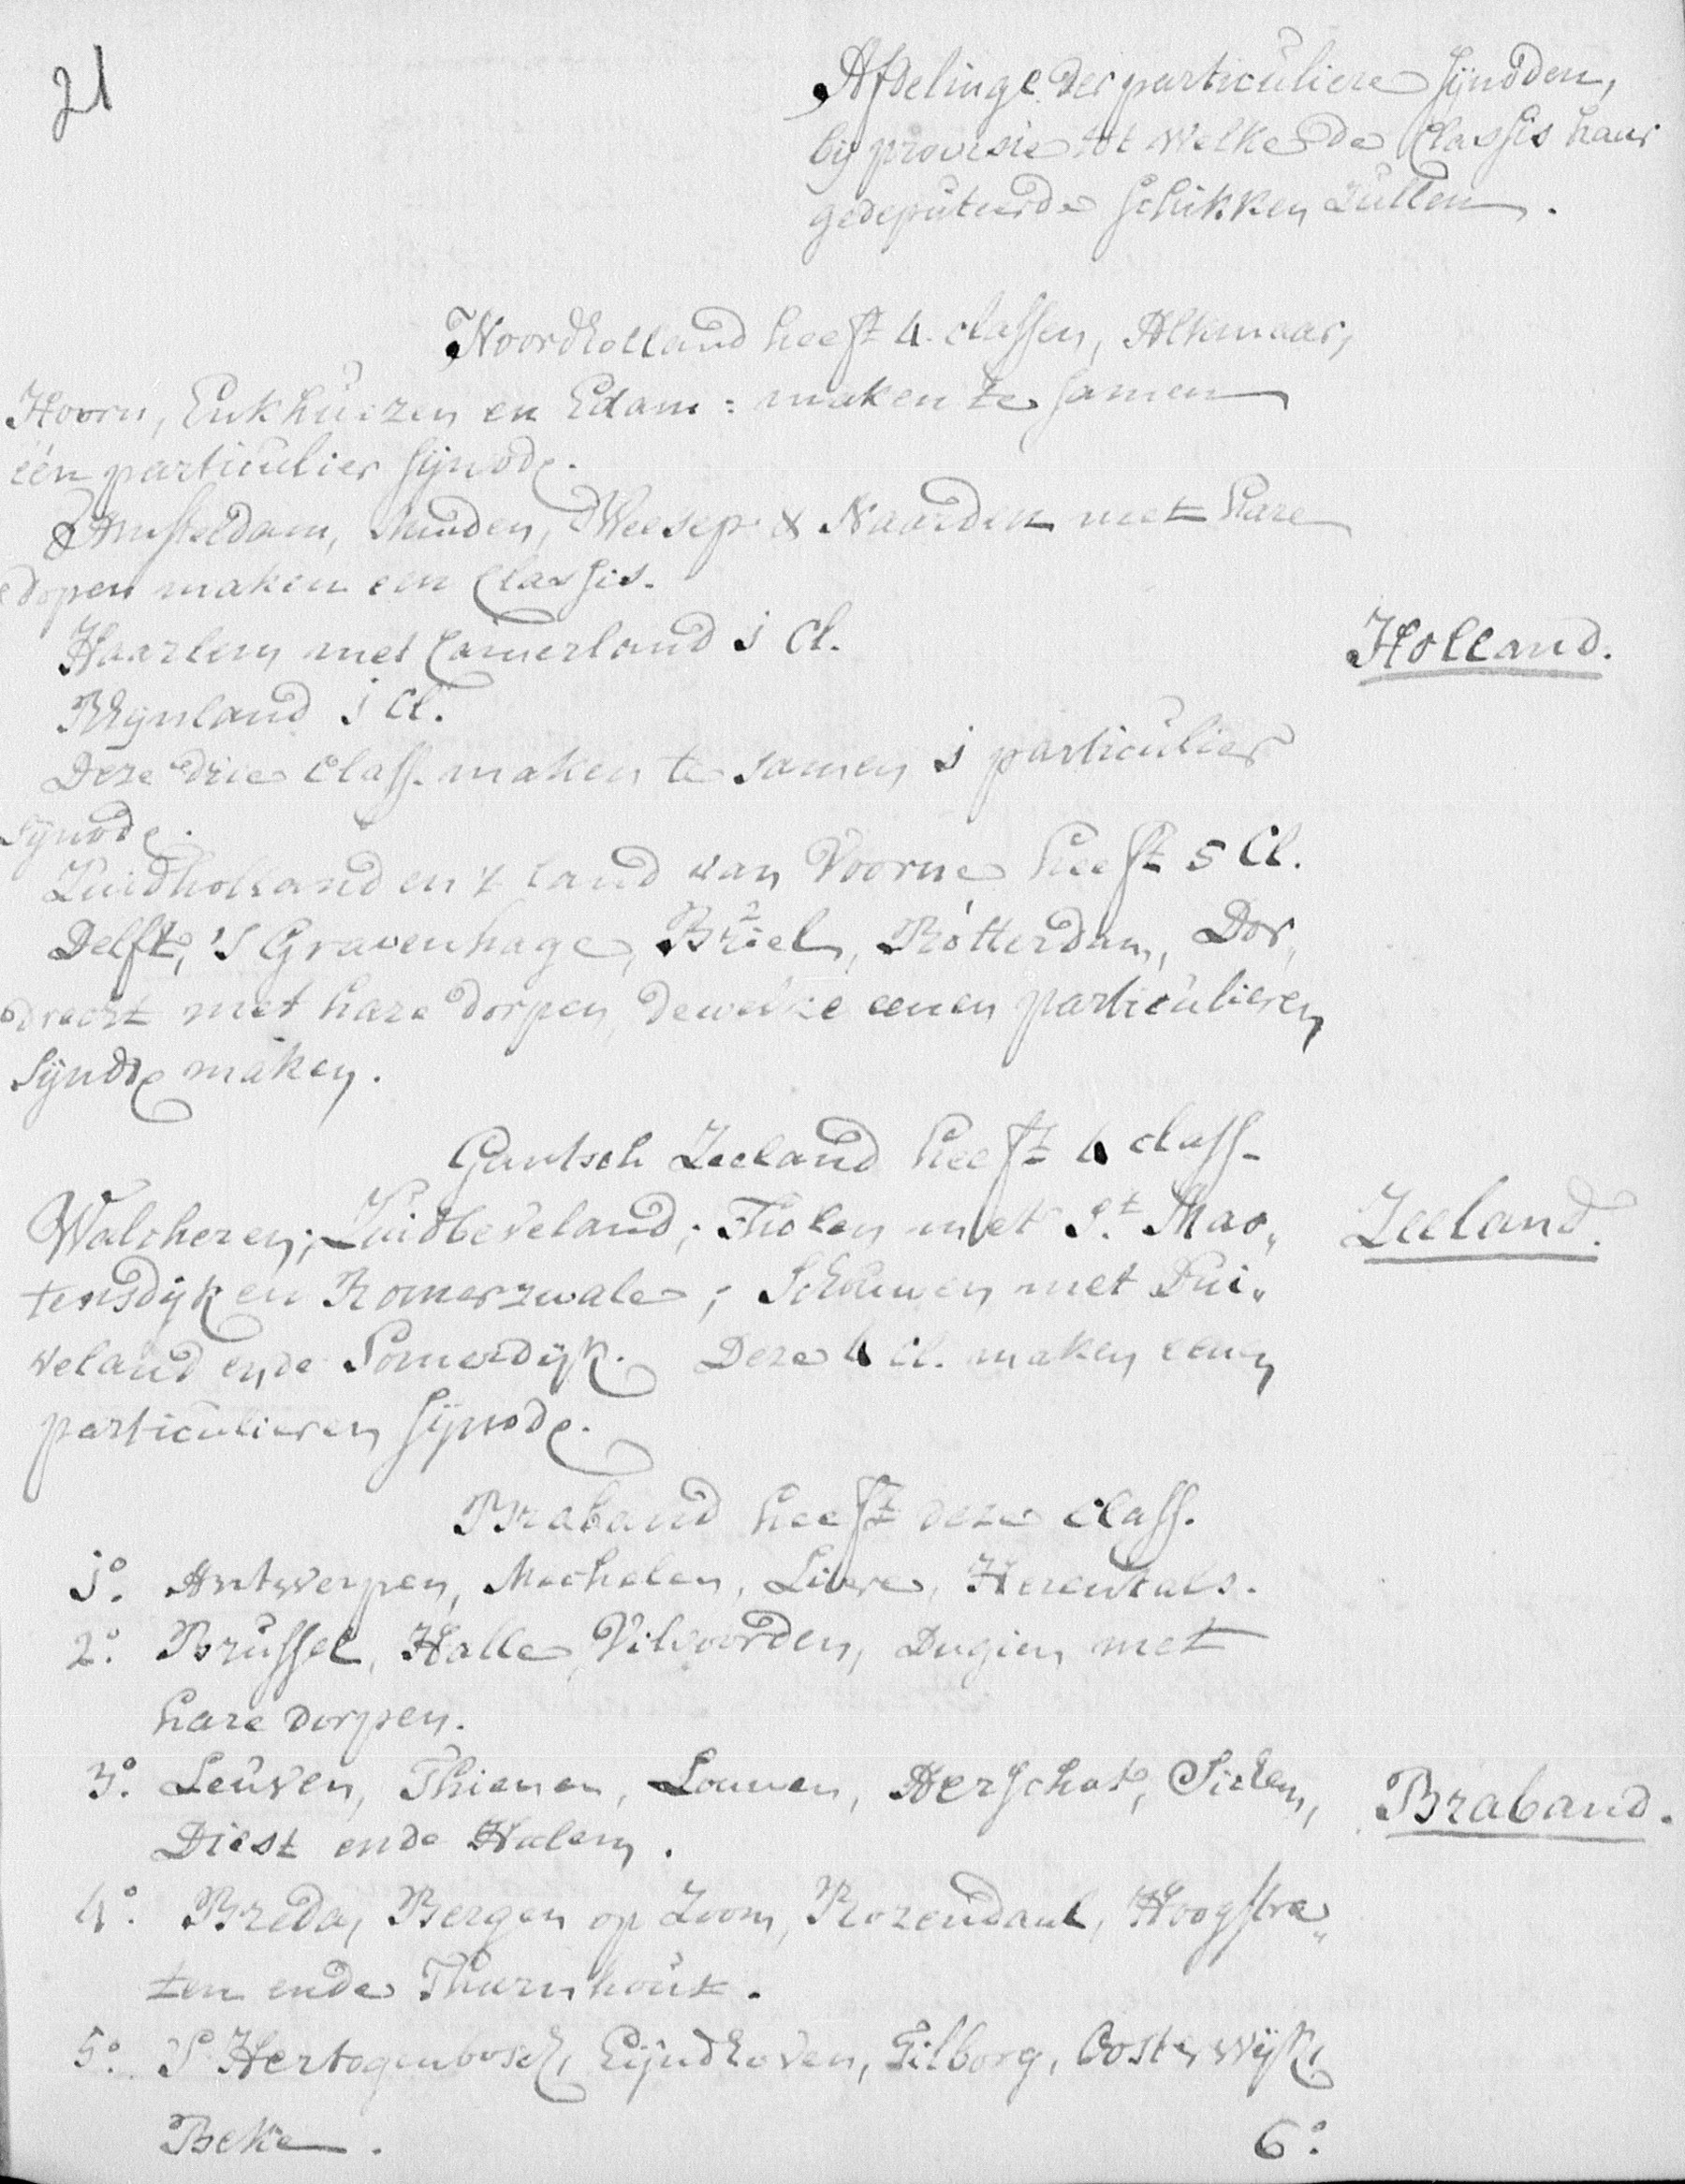 21
Afdelinge der particuliere Sÿnoden,
bÿ provisie tot welke de Classis haar
gedeputeerde schikken Zullen.
Noordholland heeft 4. classen, Alkmaar,
Hoorn, Enkhuizen en Edam: maken te samen
één particulier Sÿnode.
Amsteldam, Muiden, Weesep & Naarden met hare
dopen maken een Classis.
Haarlem met Camerland j Cl.
Rhÿnland j Cl.
Deze drie Class. maken te samen j particulier
Sÿnode.
Zuidholland en 't land van Voorne heeft 5 Cl.
Delft, 's Gravenhage, Briel, Rotterdam, Dor„
drecht met hare dorpen, dewelke eenen particulieren
Sÿnode maken.
Gantsch Zeeland heeft 4 class.
Walcheren; Zuidbeveland; Tholen met St. Mar„
tensdÿk en Romerzwale; Schouwen met Dui„
veland ende Somerdÿk. Deze 4 Cl. maken eenen
particulieren Sÿnode.
Braband heeft deze Class.
1o. Antwerpen, Mechelen, Liere, Herentals.
2o. Brussel, Halle, Vilvoorden, Dugien met
hare dorpen.
3o. Leuven, Thienen, Leuwen, Aerschot, Sichen,
Diest ende Halen.
4o. Breda, Bergen op Zoom, Rozendaal, Hoogstra„
ten ende Thurnhout.
5o. 'S Hertogenbosch, Eÿndhoven, Tilborg, Oosterwÿk,
Beke.
6o.
Holland.
Zeeland.
Braband.